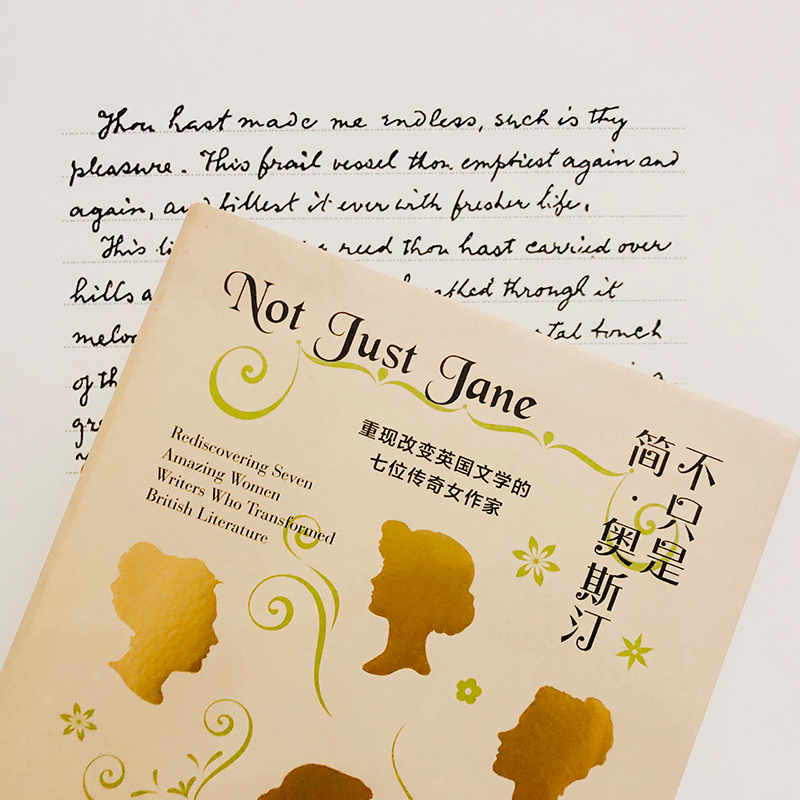 Thou hast made me endless, such is thy
pleasure. This frail vessel thou emptiest again and
again, and fillest it ever with fresher life.
This a reed thou hast carried over
hills through it
touch
of
Not Just Jane
Rediscovering Seven
Amazing Women
Writers Who Transformed
British Literature
重现改变英国文学的
七位传奇女作家
不只是
简·奥斯汀